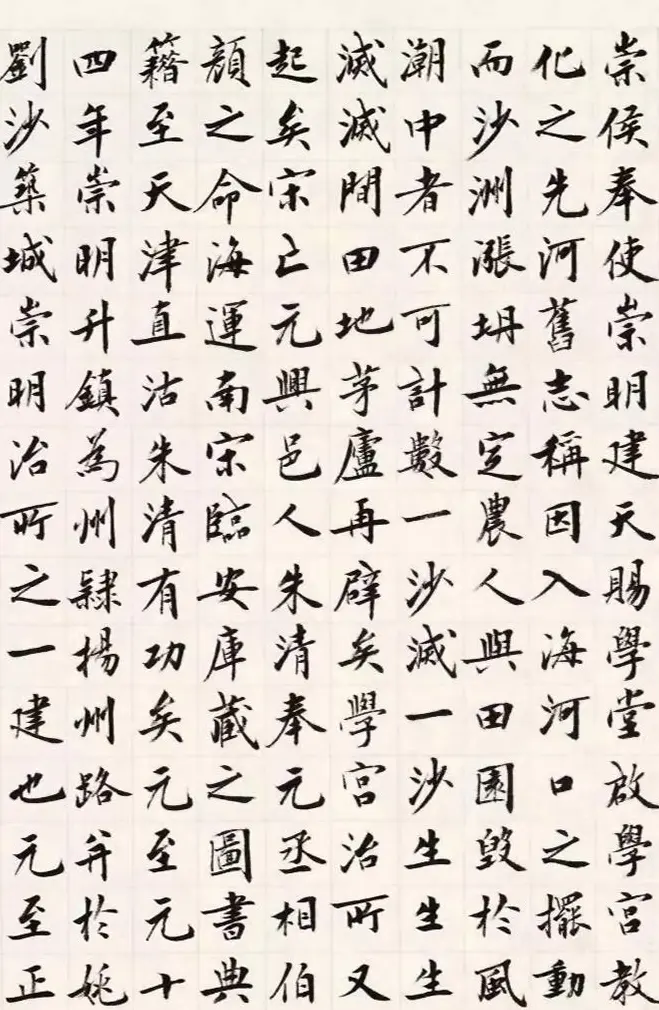 崇侯奉使崇明建天賜學堂啟學宮教
化之先河舊志稱因入海河口之擺動
而沙洲漲坍無定農人與田園毀於風
潮中者不可計數一沙滅一沙生生生
滅滅間田地茅廬再辟矣學宮治所又
起矣宋亡元興邑人朱清奉元丞相伯
顏之命海運南宋臨安庫藏之圖書典
籍至天津直沽朱清有功矣元至元十
四年崇明升鎮為州隸揚州路并於姚
劉沙築城崇明治所之一建也元至正